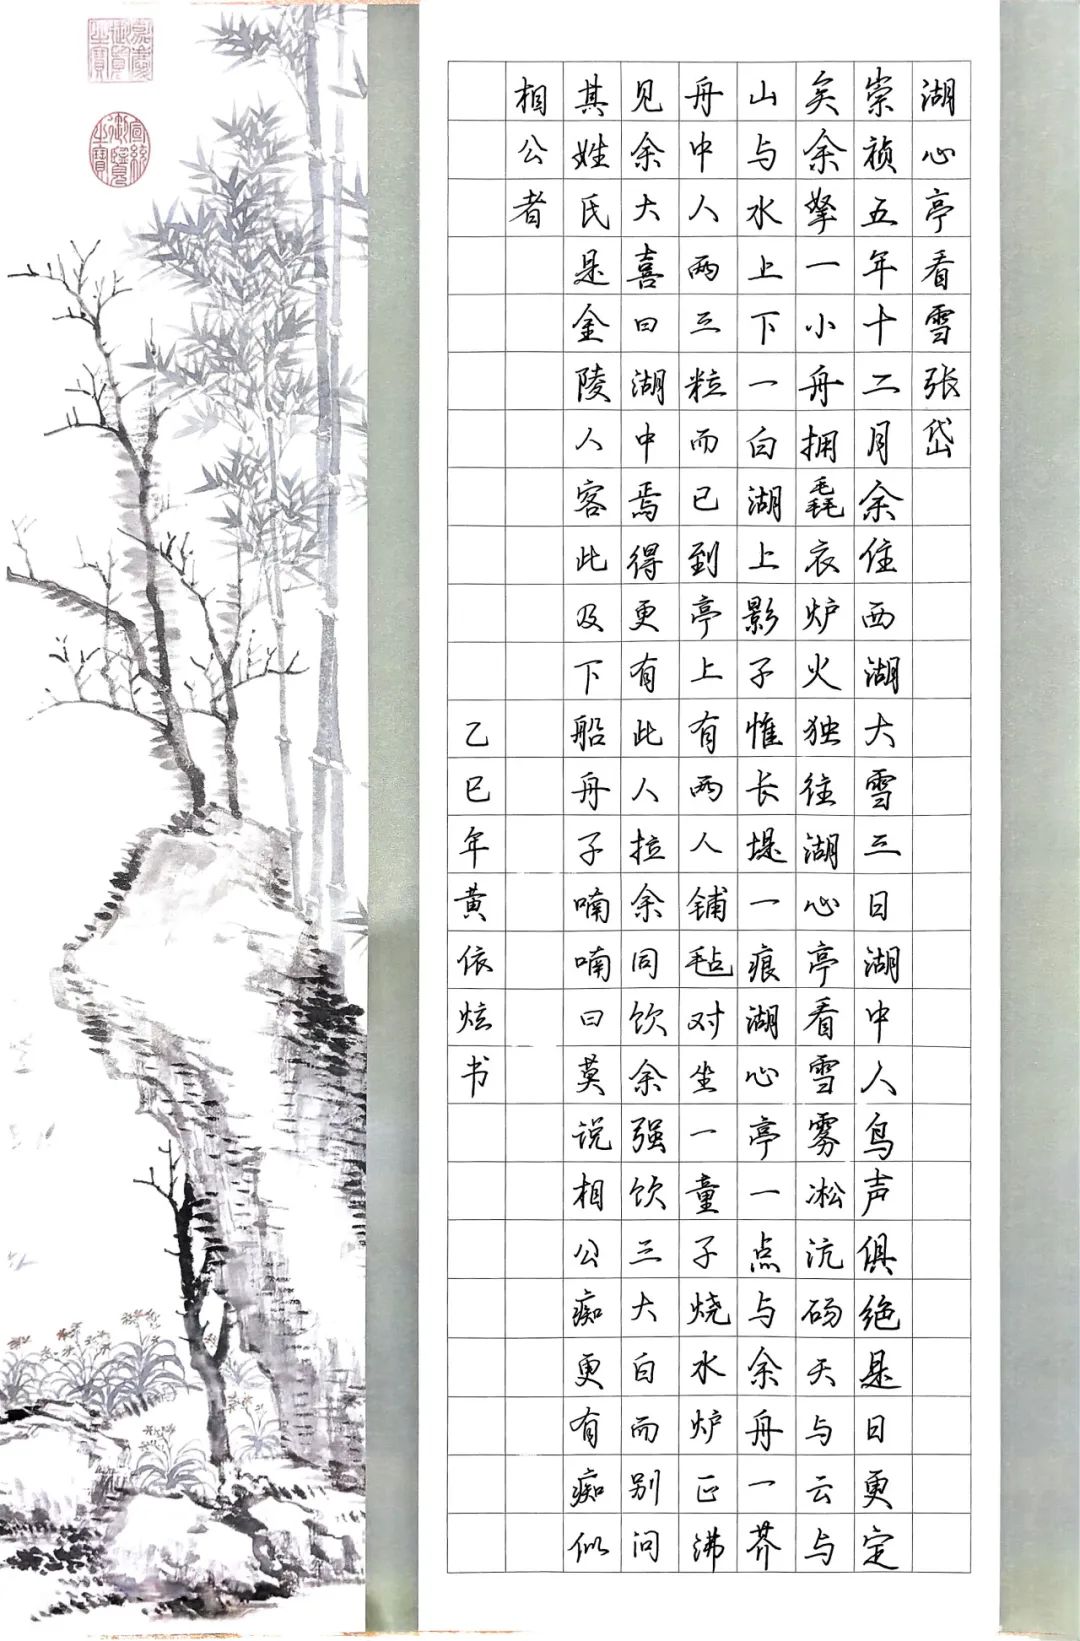 湖心亭看雪张岱
崇祯五年十二月余住西湖大雪三日湖中人鸟声俱绝是日更定
矣余拏一小舟拥毳衣炉火独往湖心亭看雪雾凇沆砀天与云与
山与水上下一白湖上影子惟长堤一痕湖心亭一点与余舟一芥
舟中人两三粒而已到亭上有两人铺毡对坐一童子烧水炉正沸
见余大喜曰湖中焉得更有此人拉余同饮余强饮三大白而别问
其姓氏是金陵人客此及下船舟子喃喃曰莫说相公痴更有痴似
相公者
乙巳年黄依炫书
嘉慶御覽之寶
宣統御覽之寶